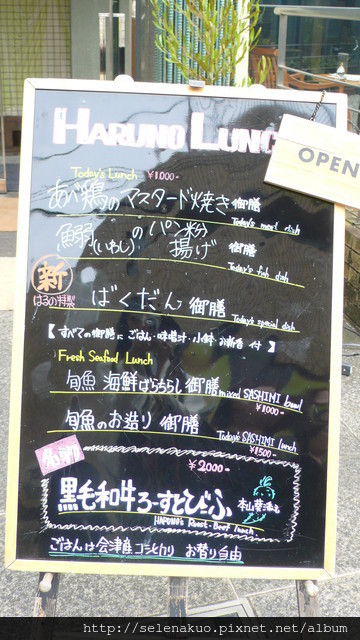 HARUNO LUNC
OPEN
Today's Lunch ¥1000-
あべ鶏のマスタード焼き御膳
Today's meat dish
鰯(いわし)のパン粉揚げ 御膳
Today's fish dish
新
はるの特製 ばくだん 御膳
Today's special dish
【すべての御膳に ごはん・味噌汁・小鉢・お新香 付】
Fresh Seafood Lunch
旬魚 海鮮ばらちらし御膳 mixed SASHIMI bowl
¥1000-
旬魚のお造り 御膳
Today's SASHIMI lunch
¥1500-
¥2000-
黒毛和牛ろーすとびーふ
HARUNO's Roast-Beef lunch
ごはんは会津産コシヒカリ お替り自由
http://selenakuo.pixnet.net/album